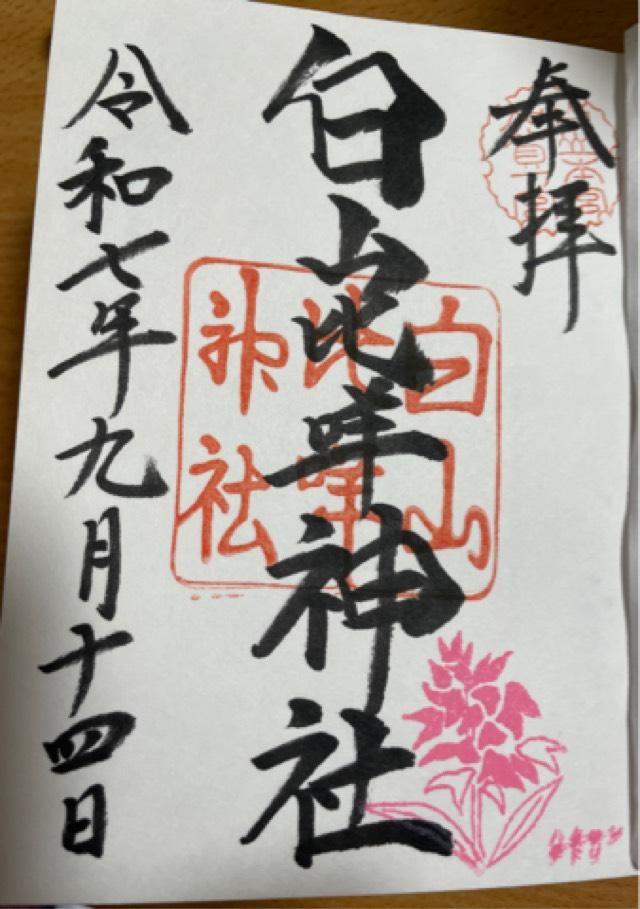 奉拝
白山比咩神社
白山比咩神社
令和七年九月十四日